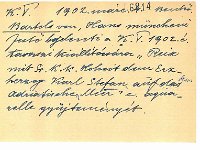 K. V. 1902 márc 14 Benkő,
Bartels von, Hans müncheni
festő bejelenti a K. V. 1902 é.
tavaszi kiállítására "Reise
mit Sr. k. k. Hoheit dem Erz-
herzog Karl Stefan auf das
Adriatische Meer" c. aqua-
relle gyűjteményét.